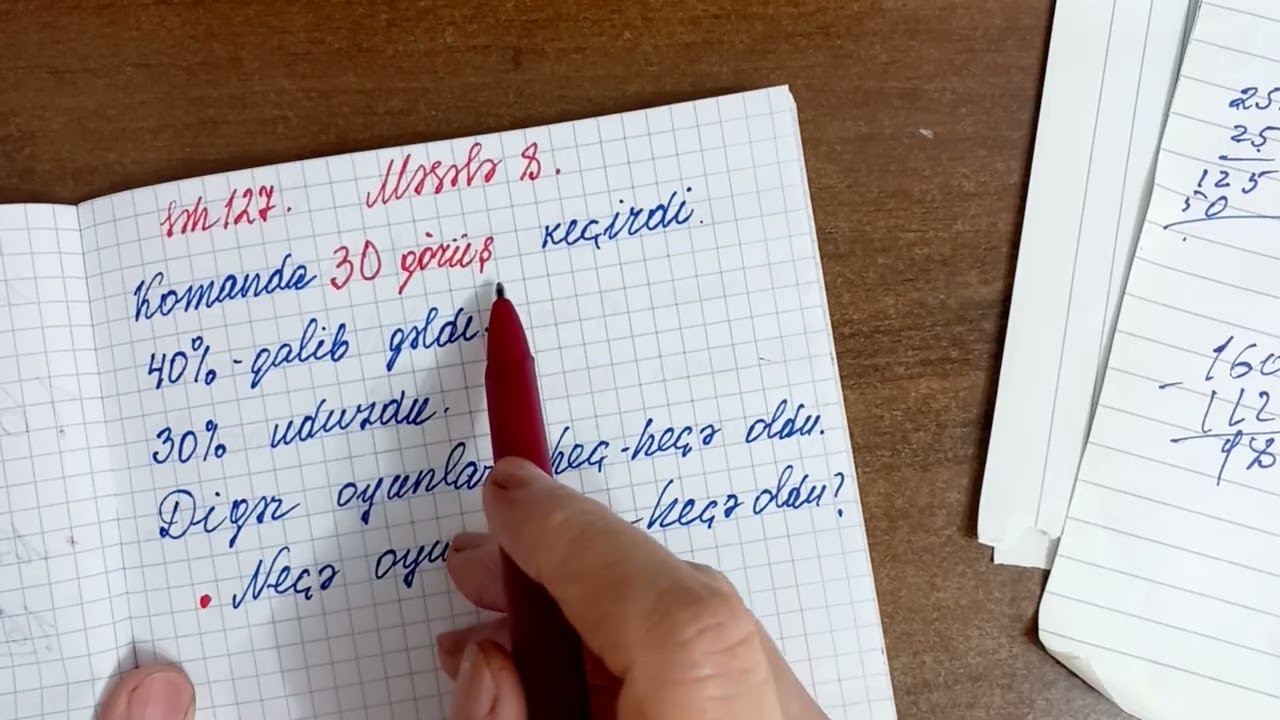 səh 127. Məsələ 8.
Komanda 30 görüş keçirdi.
40% - qalib gəldi.
30% uduzdu.
Digər oyunlar heç-heçə oldu.
• Neçə -heçə oldu?
25
25
125
50
- 112
48